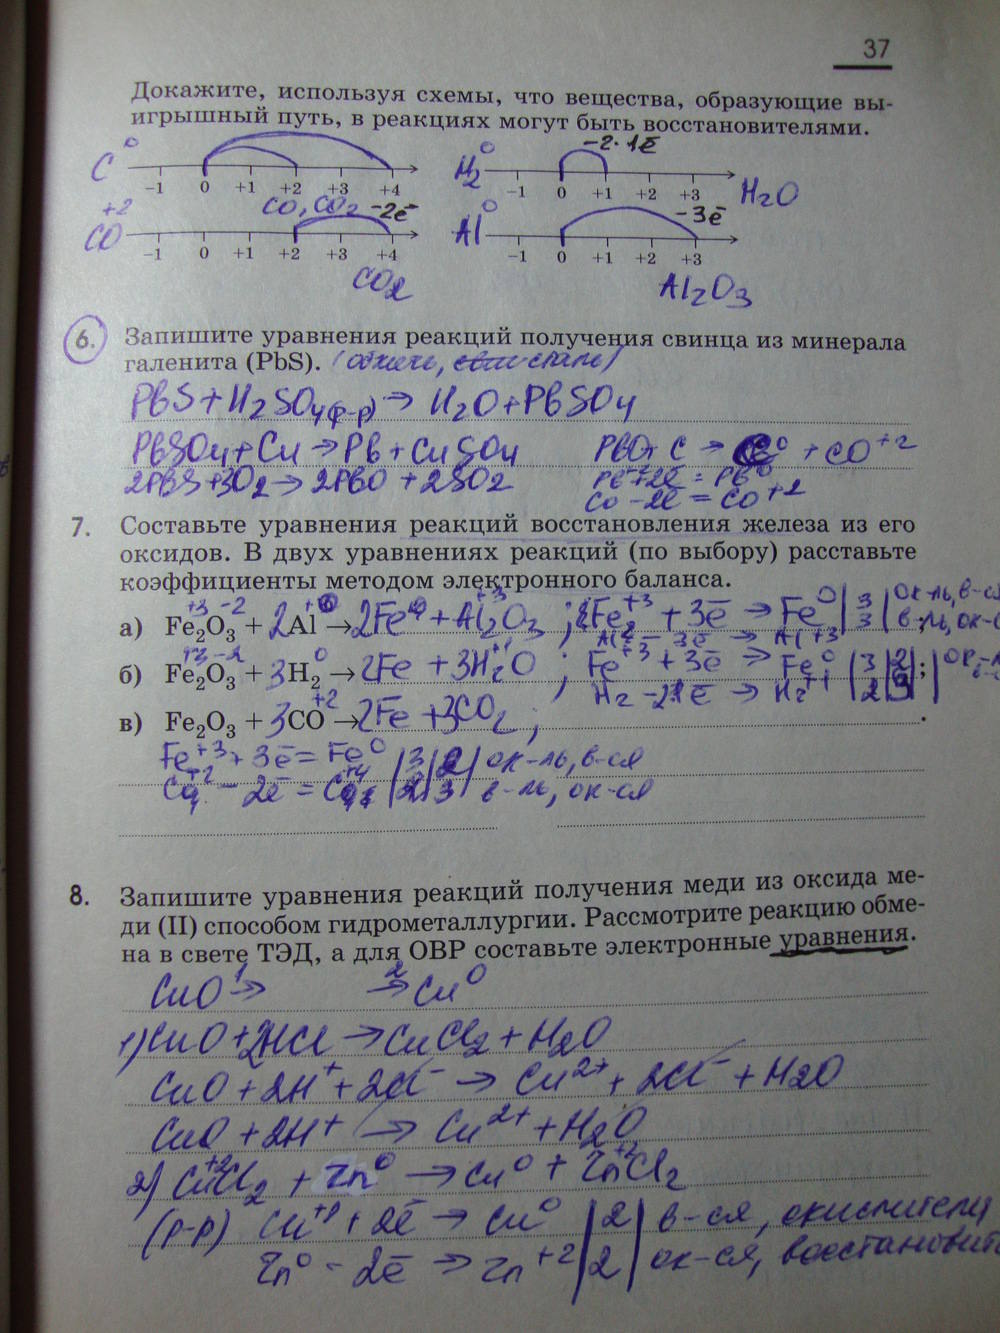 37
Докажите, используя схемы, что вещества, образующие вы-
игрышный путь, в реакциях могут быть восстановителями.
C⁰ -1 0 +1 +2 +3 +4
CO, CO₂
H₂⁰ -2·1ē -1 0 +1 +2 +3 H₂O
+2 CO -2ē -1 0 +1 +2 +3 +4
CO₂
Al⁰ -3ē -1 0 +1 +2 +3
Al₂O₃
6. Запишите уравнения реакций получения свинца из минерала
галенита (PbS).
PbS + H₂SO₄(р-р) → H₂O + PbSO₄
PbSO₄ + Cu → Pb + CuSO₄ PbO + C → + CO⁺²
2PbS + 3O₂ → 2PbO + 2SO₂ Pb + 2ē = Pb⁰
Co - 2ē = CO⁺²
7. Составьте уравнения реакций восстановления железа из его
оксидов. В двух уравнениях реакций (по выбору) расставьте
коэффициенты методом электронного баланса.
а) Fe₂O₃ + 2Al → 2Fe + Al₂O₃ ; Fe⁺³ + 3ē → Fe⁰ | 3 | ок-ль, в-ся
Al - 3ē → Al⁺³ | 3 | в-ль, ок-с
б) Fe₂O₃ + 3H₂ → 2Fe + 3H₂O ; Fe⁺³ + 3ē → Fe⁰ | 3 | 2 | ;
H₂ - 2·1ē → H₂⁺¹ | 2 | 3 |
в) Fe₂O₃ + 3CO → 2Fe + 3CO₂ ; .
Fe⁺³ + 3ē = Fe⁰ | 3 | 2 | ок-ль, в-ся
C⁺² - 2ē = C⁺⁴ | 2 | 3 | в-ль, ок-ся
8. Запишите уравнения реакций получения меди из оксида ме-
ди (II) способом гидрометаллургии. Рассмотрите реакцию обме-
на в свете ТЭД, а для ОВР составьте электронные уравнения.
CuO →¹ →² Cu⁰
1) CuO + 2HCl → CuCl₂ + H₂O
CuO + 2H⁺ + 2Cl⁻ → Cu²⁺ + 2Cl⁻ + H₂O
CuO + 2H⁺ → Cu²⁺ + H₂O
2) Cu⁺²Cl₂ + Zn⁰ → Cu⁰ + Zn⁺²Cl₂
(р-р) Cu + 2ē → Cu⁰ | 2 | в-ся, окислитель
Zn⁰ - 2ē → Zn⁺² | 2 | ок-ся, восстановит